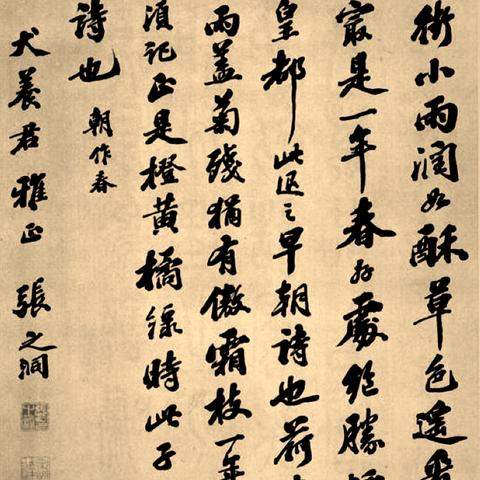 街小雨潤如酥草色遙看
最是一年春好處絕勝
皇都此退之早朝詩也荷
雨蓋菊殘猶有傲霜枝一年
須記正是橙黃橘綠時此子
詩也 朝作春
犬養君雅正 張之洞